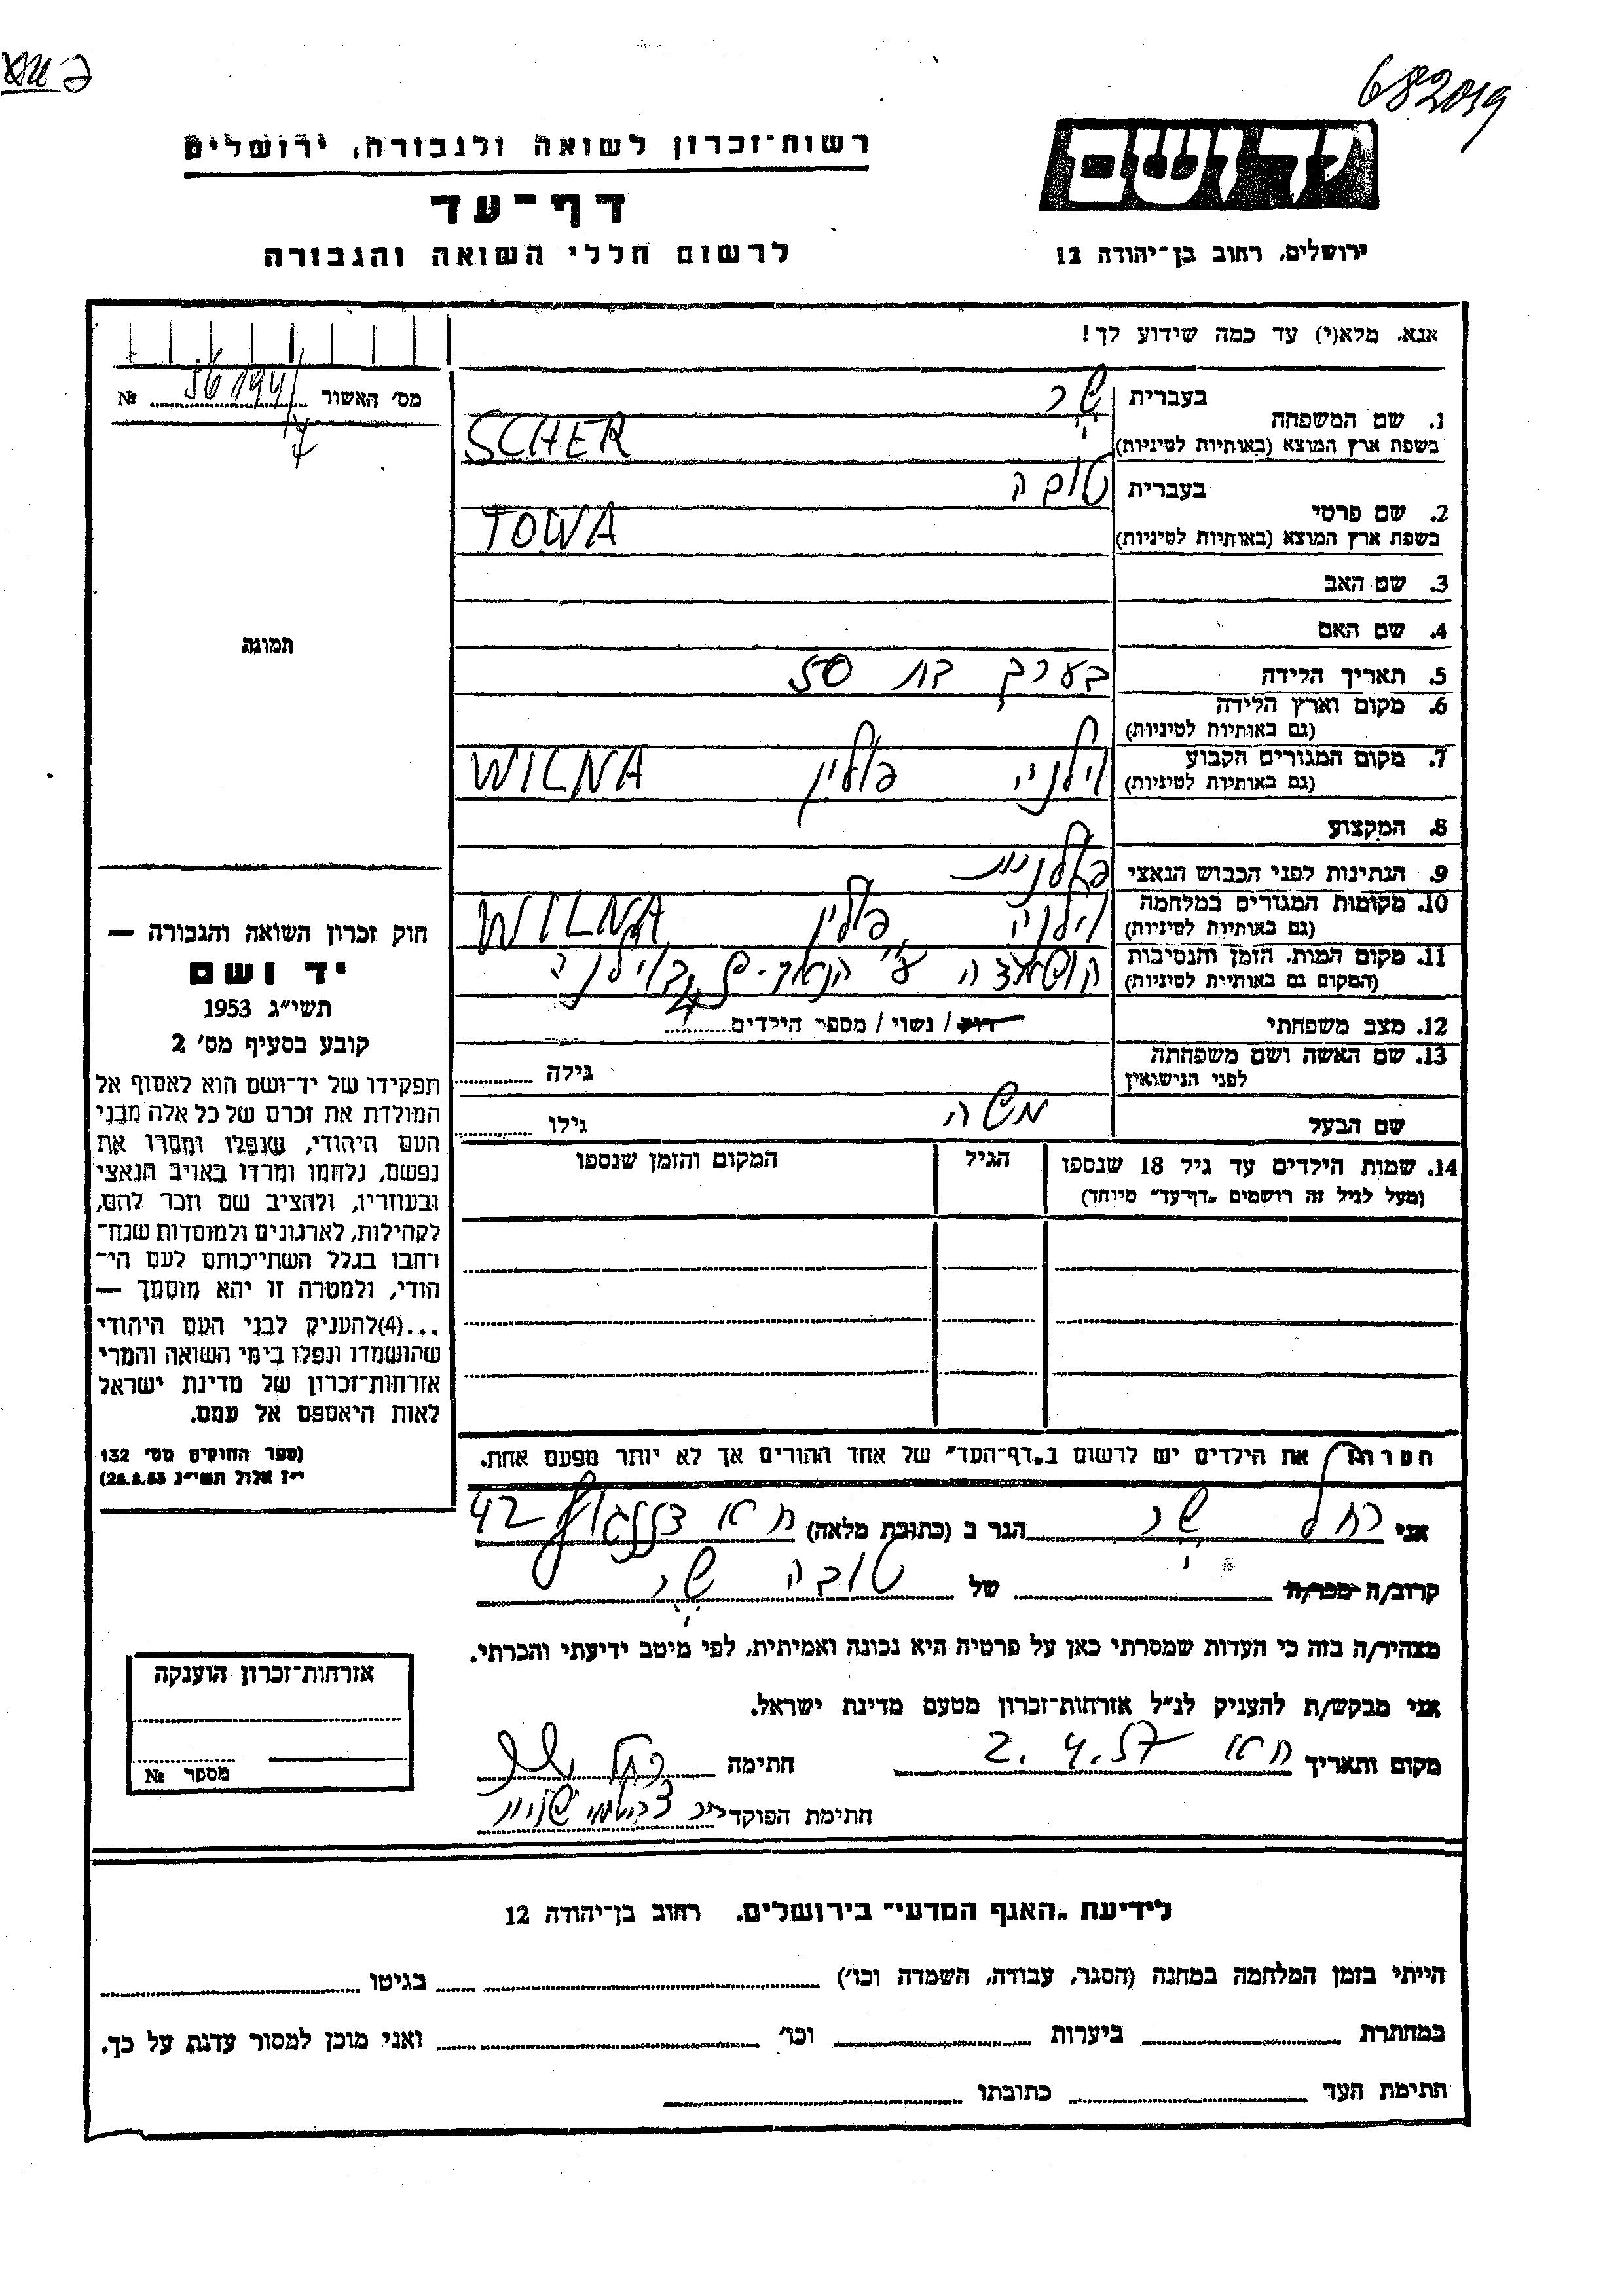 682019
רשות־זכרון לשואה ולגבורה, ירושלים
יד ושם
דף־עד
לרשום חללי השואה והגבורה
ירושלים, רחוב בן־יהודה 12
אנא, מלא(י) עד כמה שידוע לך!
מס' האשור № 56194/
1. שם המשפחה
בעברית שר
בשפת ארץ המוצא (באותיות לטיניות) SCHER
2. שם פרטי
בעברית טובה
בשפת ארץ המוצא (באותיות לטיניות) TOWA
3. שם האב
4. שם האם
תמונה
5. תאריך הלידה בערך בת 50
6. מקום וארץ הלידה
(גם באותיות לטיניות)
7. מקום המגורים הקבוע וילנה פולין WILNA
(גם באותיות לטיניות)
8. המקצוע
9. הנתינות לפני הכבוש הנאצי פולנית
10. מקומות המגורים במלחמה וילנה פולין WILNA
(גם באותיות לטיניות)
11. מקום המות, הזמן והנסיבות הושמדה ע"י הנאצים בוילנה
(המקום גם באותיות לטיניות)
12. מצב משפחתי רווק / נשוי / מספר הילדים 4
13. שם האשה ושם משפחתה
לפני הנישואין גילה
שם הבעל משה גילו
14. שמות הילדים עד גיל 18 שנספו הגיל המקום והזמן שנספו
(מעל לגיל זה רושמים "דף־עד" מיוחד)
חוק זכרון השואה והגבורה —
יד ושם
תשי"ג 1953
קובע בסעיף מס' 2
תפקידו של יד־ושם הוא לאסוף אל
המולדת את זכרם של כל אלה מבני
העם היהודי, שנפלו ומסרו את
נפשם, נלחמו ומרדו באויב הנאצי
ובעוזריו, ולהציב שם וזכר להם,
לקהילות, לארגונים ולמוסדות שנח־
רבו בגלל השתייכותם לעם הי־
הודי, ולמטרה זו יהא מוסמך —
...(4)להעניק לבני העם היהודי
שהושמדו ונפלו בימי השואה והמרי
אזרחות־זכרון של מדינת ישראל
לאות היאספם אל עמם.
(ספר החוקים מס' 132
י"ז אלול תשי"ג 28.8.53)
את הילדים יש לרשום ב"דף־העד" של אחד ההורים אך לא יותר מפעם אחת.
אני רחל שר הגר ב (כתובת מלאה) ת"א 42
קרוב/ה מכר/ה של טובה שר
מצהיר/ה בזה כי העדות שמסרתי כאן על פרטיה היא נכונה ואמיתית, לפי מיטב ידיעתי והכרתי.
אני מבקש/ת להעניק לנ"ל אזרחות־זכרון מטעם מדינת ישראל.
מקום ותאריך ת"א 2.4.57 חתימה רחל שר
חתימת הפוקד
אזרחות־זכרון הוענקה
מספר №
לידיעת "האגף המדעי" בירושלים. רחוב בן־יהודה 12
הייתי בזמן המלחמה במחנה (הסגר, עבודה, השמדה וכו') בגיטו
במחתרת ביערות וכו' ואני מוכן למסור עדות על כך.
חתימת העד כתובתו